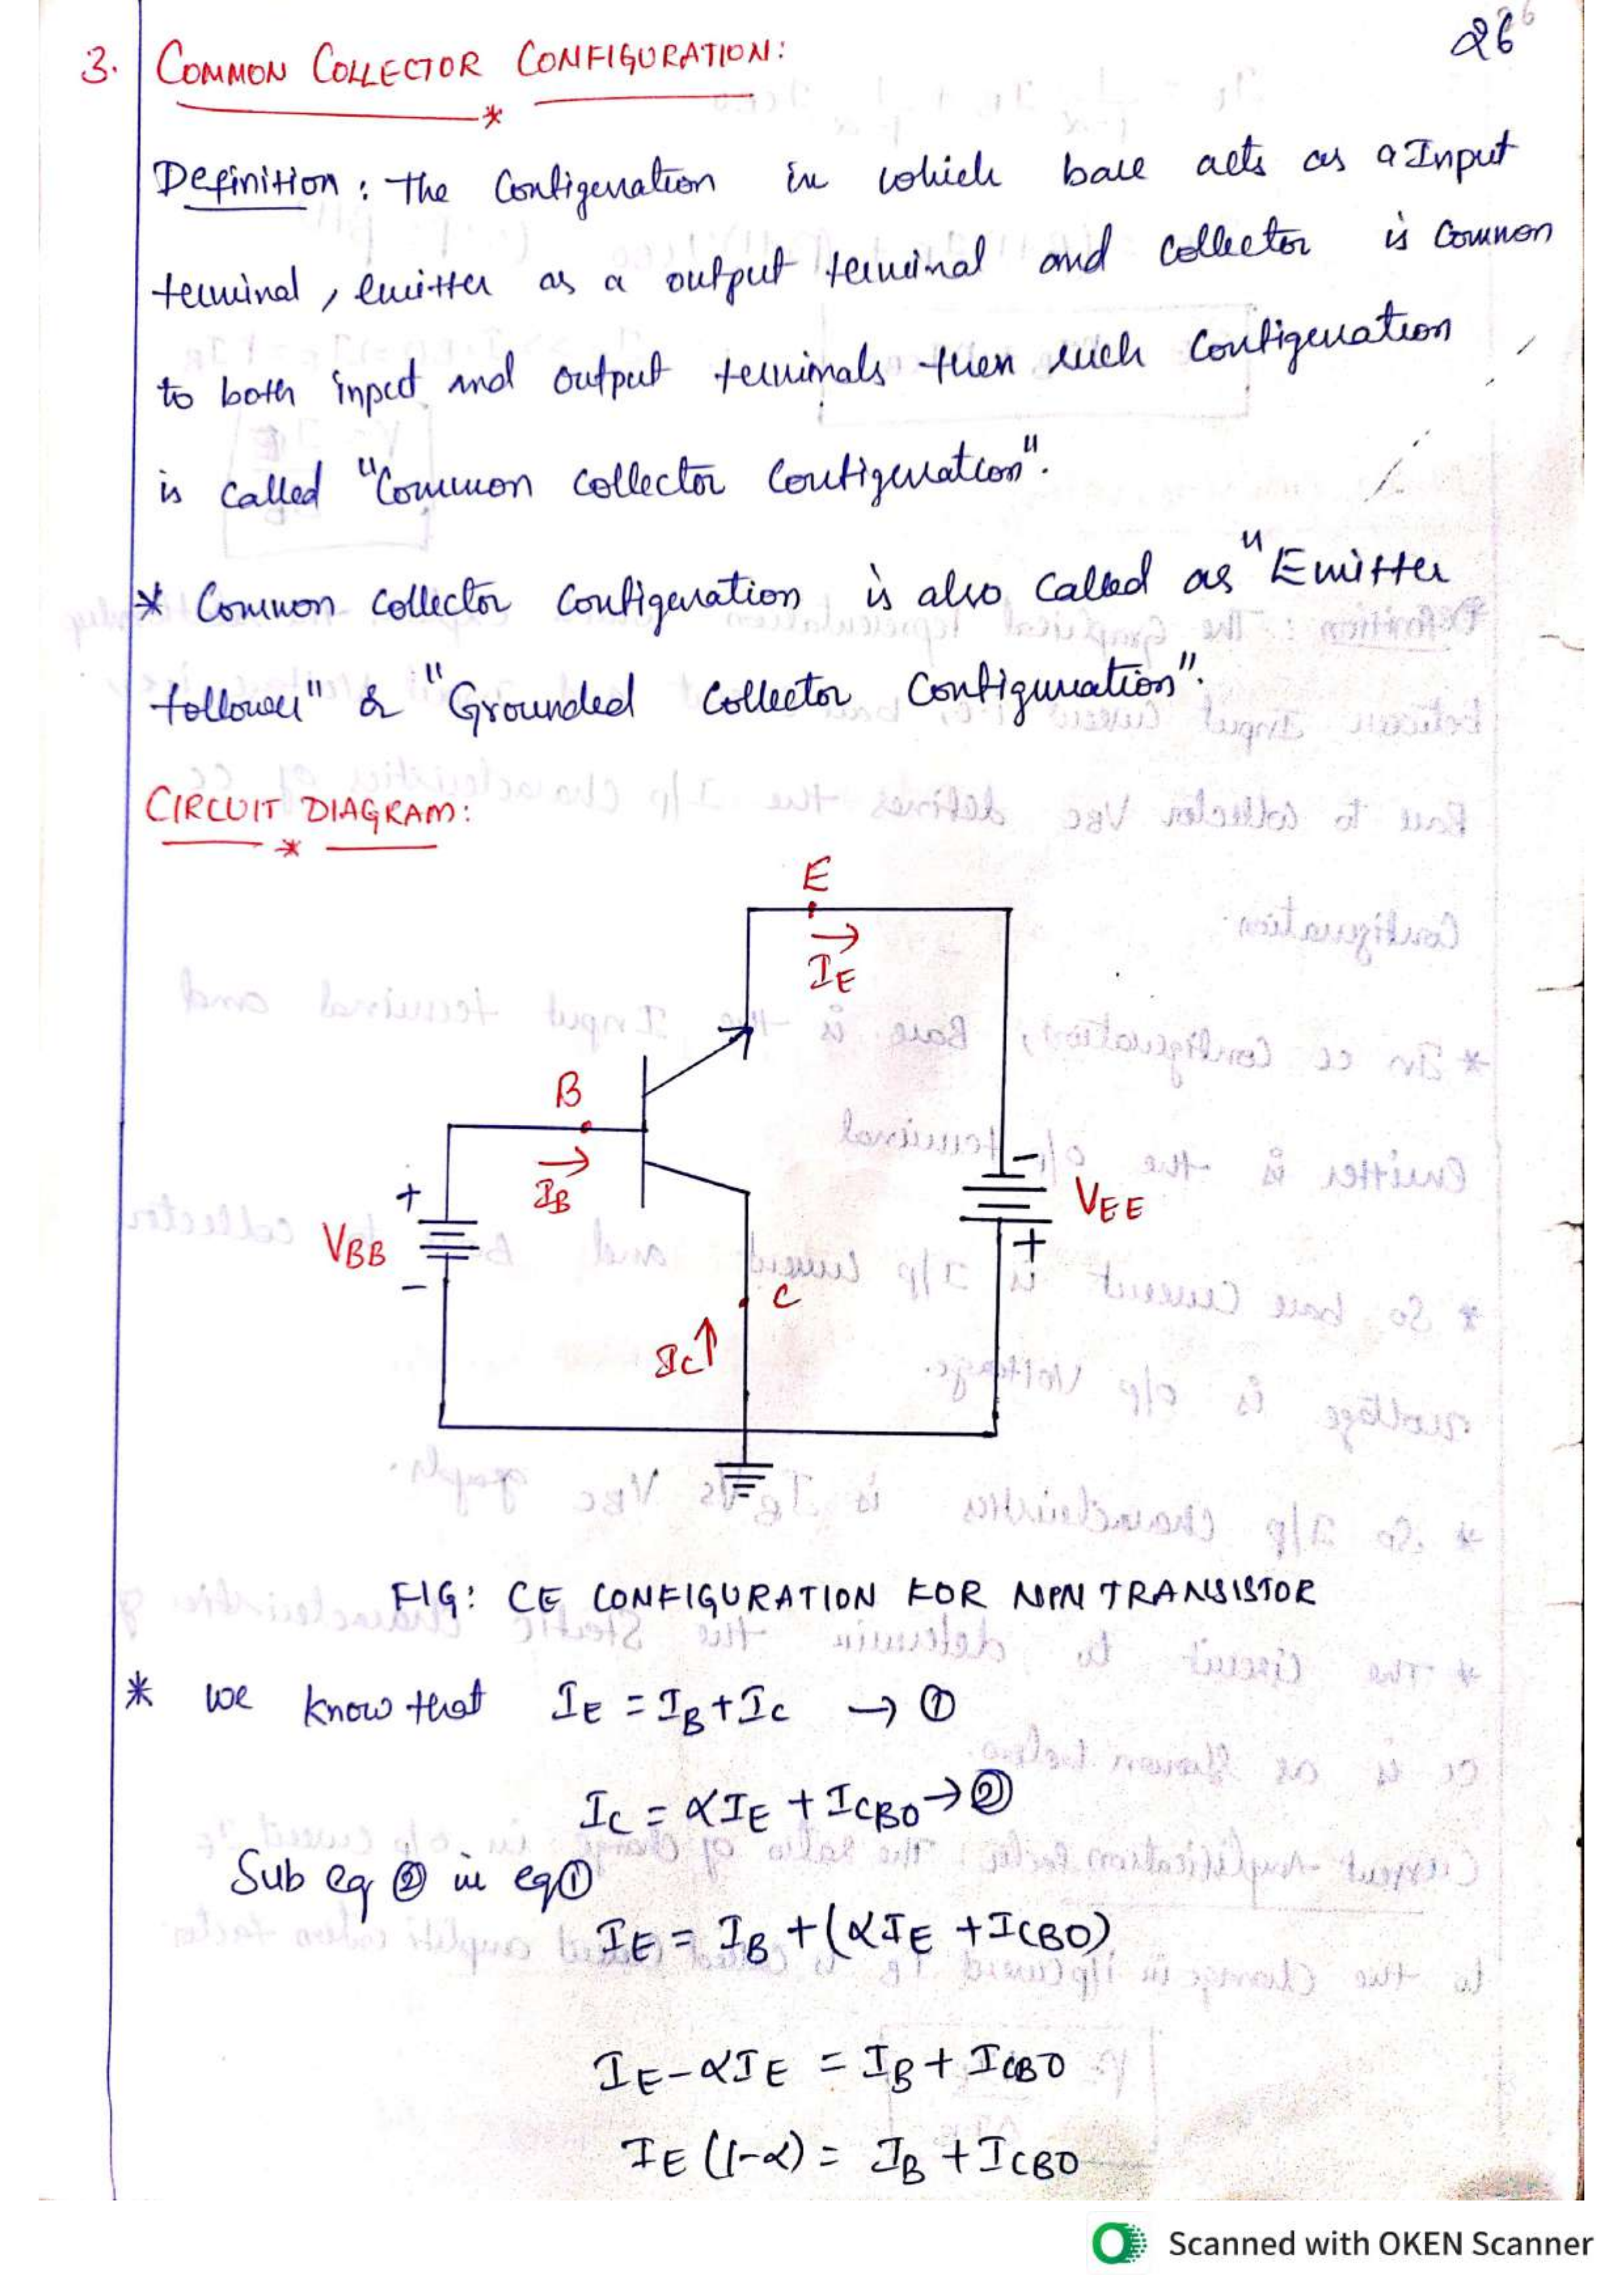 26
3. COMMON COLLECTOR CONFIGURATION:
Definition: The Configuration in which base acts as a Input
terminal, emitter as a output terminal and collector is common
to both input and output terminals then such configuration
is called "Common collector configuration".
* Common collector configuration is also called as "Emitter
follower" & "Grounded collector configuration".
CIRCUIT DIAGRAM:
E
IE
B
IB
+
VBB
-
-
VEE
+
C
IC↑
FIG: CE CONFIGURATION FOR NPN TRANSISTOR
* we know that IE = IB + IC → ①
IC = αIE + ICBO → ②
Sub eq ② in eq ①
IE = IB + (αIE + ICBO)
IE - αIE = IB + ICBO
IE (1-α) = IB + ICBO
Scanned with OKEN Scanner